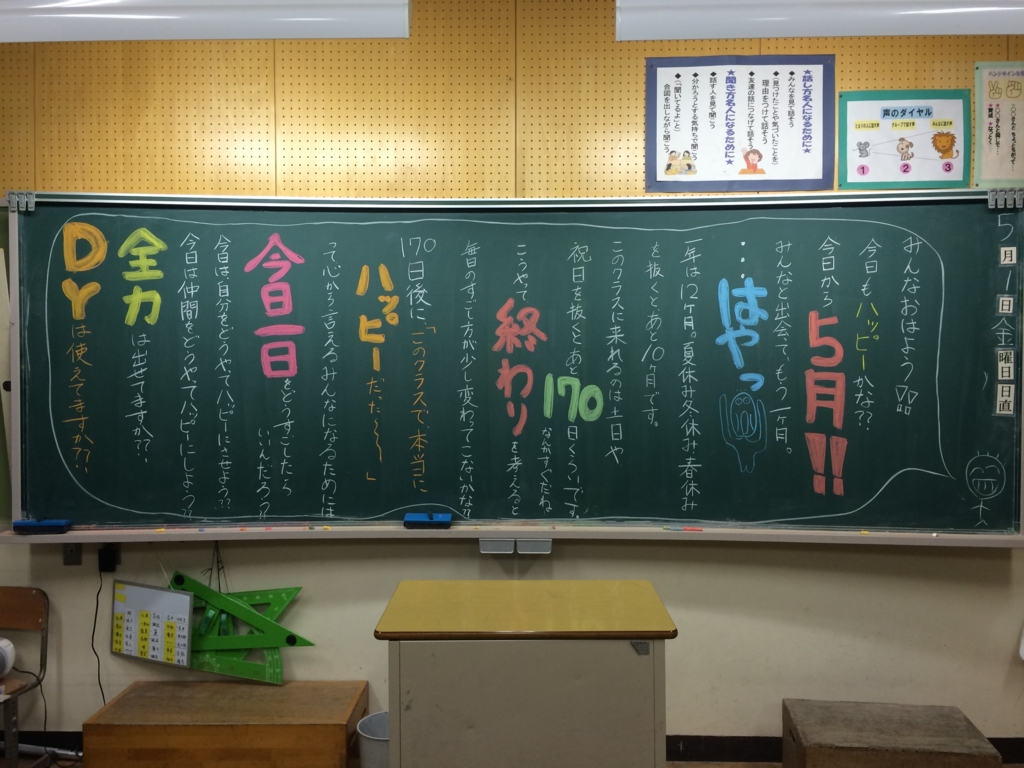 ★話し方名人になるために★
◆みんなを見て話そう
◆(見つけたことや気づいたことを)
理由をつけて話そう
◆友達の話につなげて話そう
★聞き方名人になるために★
◆話す人を見て聞こう
◆分かろうとする気持ちで聞こう
◆(「聞いてるよ」と)
合図を出しながら聞こう
声のダイヤル
1
2
3
5月1日金曜日日直
みんなおはよう!!
今日もハッピーかな??
今日から5月!!
みんなと出会って、もう一ヶ月。
・・・はやっ
一年は12ヶ月。夏休み冬休み春休み
を抜くと、あと10ヶ月です。
このクラスに来れるのは土日や
祝日を抜くとあと170日くらいです。
なんかすくないね
こうやって終わりを考えると
毎日のすごし方が少し変わってこないかな??
170日後に、「このクラスで、本当に
ハッピーだった〜〜」
って心から言えるみんなになるためには
今日一日をどうすごしたら
いいんだろう??
今日は、自分をどうやってハッピーにさせよう??
今日は仲間をどうやってハッピーにしよう??
全力は出せてますか??
DYは使えてますか??